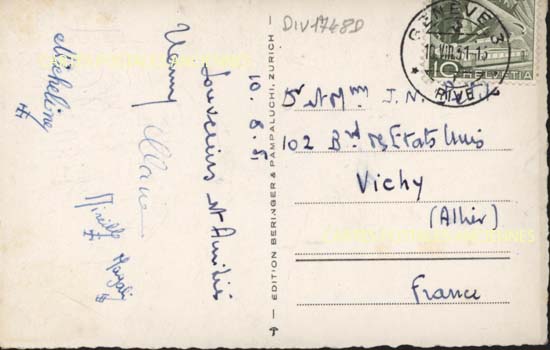 DIV1748D
GENEVE 3
10.VIII.51-15
RIVE
10 HELVETIA
10.8.51
Souvenirs et Amitiés
Micheline
Mireille
EDITION BERINGER & PAMPALUCHI, ZURICH
Dr et Mme J.N.
102 Bd des Etats Unis
Vichy
(Allier)
France
CARTES POSTALES ANCIENNES